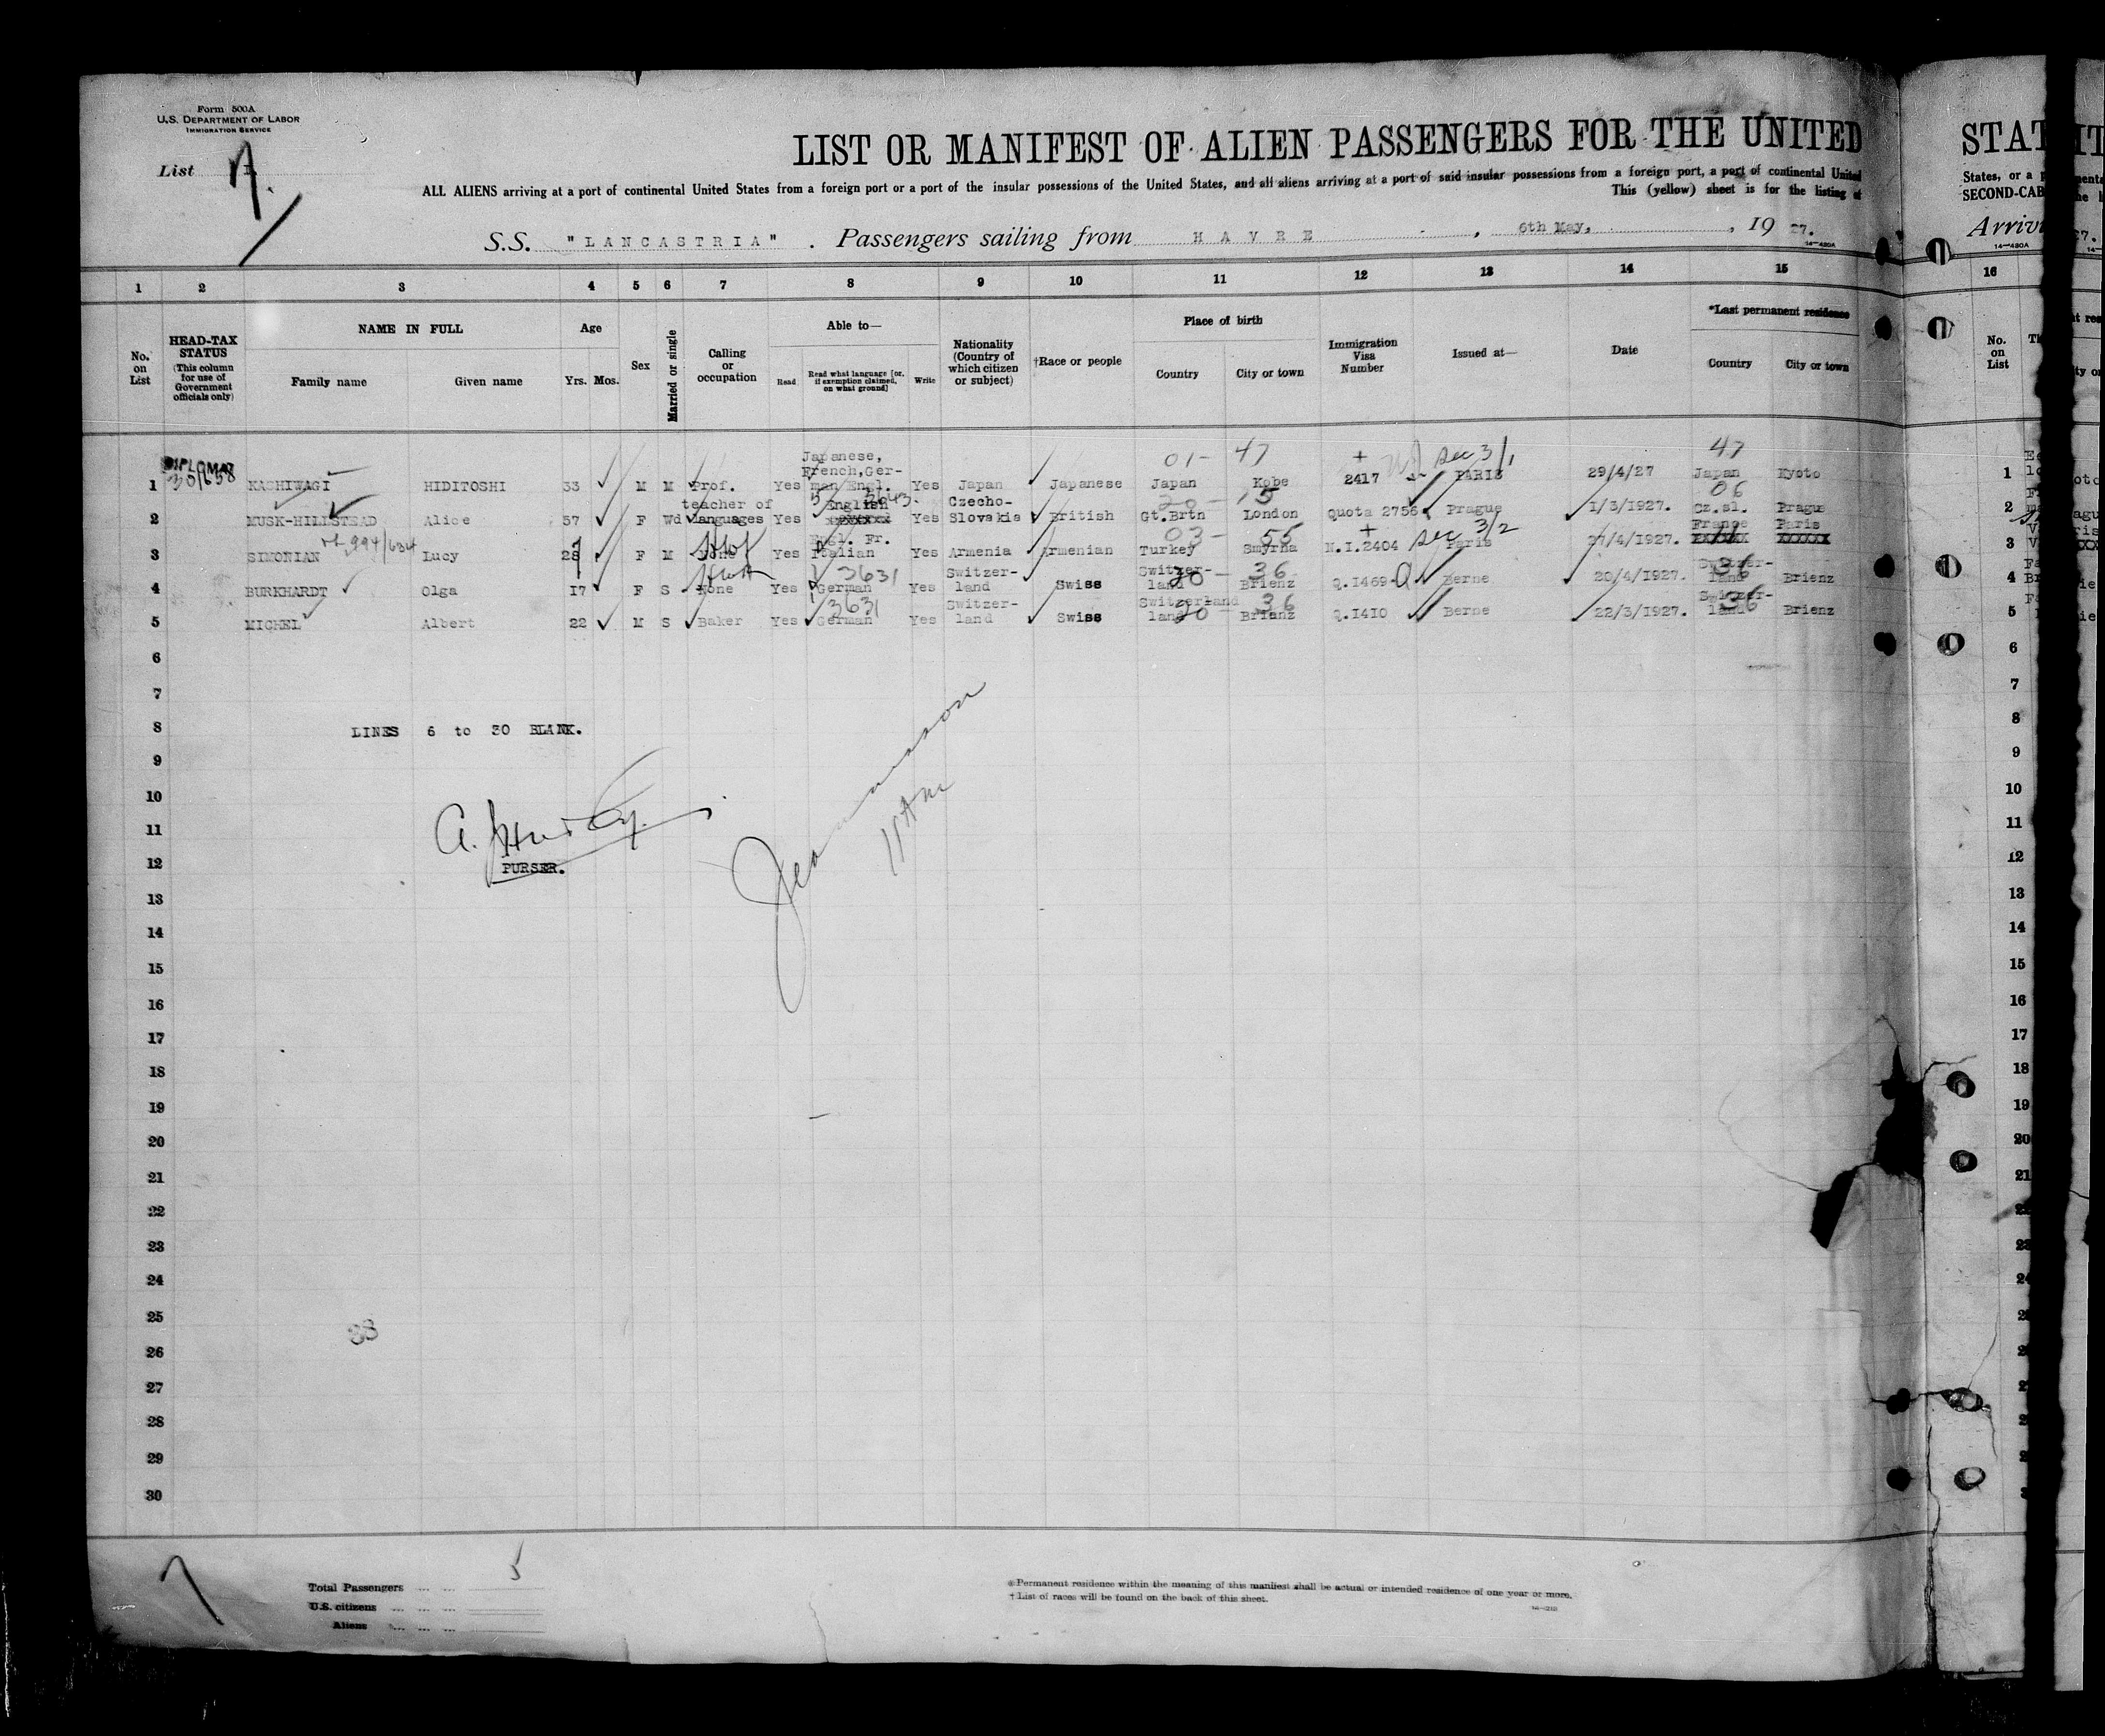 Form 500A
U.S. DEPARTMENT OF LABOR
IMMIGRATION SERVICE
List
LIST OR MANIFEST OF ALIEN PASSENGERS FOR THE UNITED
ALL ALIENS arriving at a port of continental United States from a foreign port or a port of the insular possessions of the United States, and all aliens arriving at a port of said insular possessions from a foreign port, a port of continental United
This (yellow) sheet is for the listing of
S.S. "LANCASTRIA". Passengers sailing from HAVRE, 6th May, , 19 27.
14—430A
1 2 3 4 5 6 7 8 9 10 11 12 13 14 15
No. on List
HEAD-TAX STATUS (This column for use of Government officials only)
NAME IN FULL
Family name Given name
Age
Yrs. Mos.
Sex
Married or single
Calling or occupation
Able to—
Read Read what language [or, if exemption claimed, on what ground] Write
Nationality (Country of which citizen or subject)
†Race or people
Place of birth
Country City or town
Immigration Visa Number
Issued at—
Date
*Last permanent residence
Country City or town
DIPLOMAT
01- 47 sec 3/1 47
1 KASHIWAGI HIDITOSHI 33 M M Prof. Yes Japanese, French, German Engl. Yes Japan Japanese Japan Kobe 2417 PARIS 29/4/27 Japan Kyoto
2 MUSK-HILLSTEAD Alice 57 F Wd teacher of languages Yes English Yes Czecho-Slovakia British Gt.Brtn London Quota 2756 Prague 1/3/1927. Cz.sl. Prague
3 SIMONIAN Lucy 28 F M None Yes Engl. Fr. Italian Yes Armenia Armenian Turkey Smyrna N.I.2404 sec 3/2 Paris 27/4/1927. France Paris
4 BURKHARDT Olga 17 F S None Yes German Yes Switzer-land Swiss Switzer-land Brienz Q.1469 Berne 20/4/1927. Switzer-land Brienz
5 MICHEL Albert 22 M S Baker Yes German Yes Switzer-land Swiss Switzerland land Brienz Q.1410 Berne 22/3/1927. Switzer-land Brienz
6
7
8 LINES 6 to 30 BLANK.
9
10
11
12 PURSER.
13
14
15
16
17
18
19
20
21
22
23
24
25
38
26
27
28
29
30
Total Passengers ... ... 5
U.S. citizens ... ... ...
Aliens ... ... ...
*Permanent residence within the meaning of this manifest shall be actual or intended residence of one year or more.
†List of races will be found on the back of this sheet.
STAT
States, or a
SECOND-CAB
Arriv
14—430A
16
No. on List
1
2
3
4
5
6
7
8
9
10
11
12
13
14
15
16
17
18
19
20
21